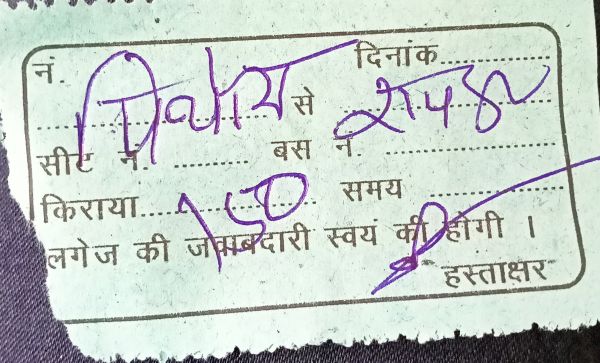 नं. दिनांक
से
सीट नं. बस नं.
किराया १५० समय
लगेज की जवाबदारी स्वयं की होगी ।
हस्ताक्षर